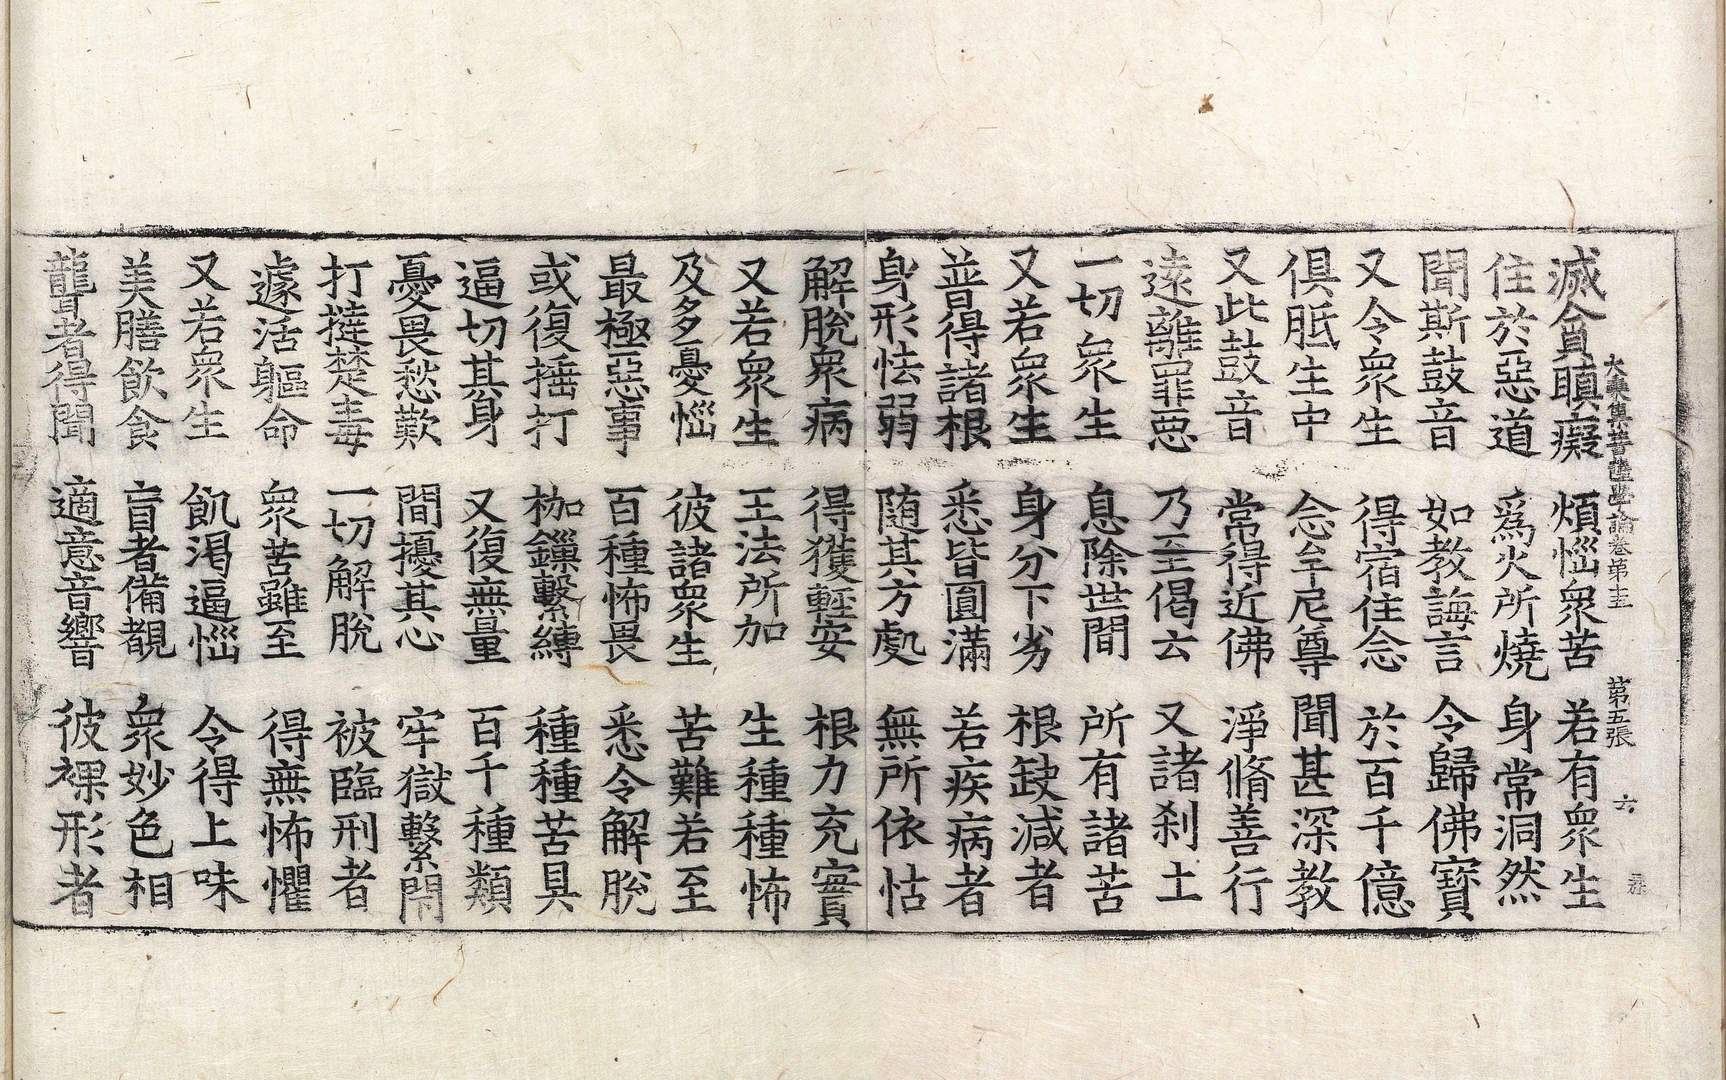 滅貪瞋癡 煩惱衆苦 若有衆生
大乘集菩薩學論卷第十三 第五張 六
住於惡道 爲火所燒 身常洞然
聞斯鼓音 如教誨言 令歸佛寶
又令衆生 得宿住念 於百千億
俱胝生中 念牟尼尊 聞甚深教
又此鼓音 常得近佛 淨脩善行
遠離罪惡 乃至偈云 又諸刹土
一切衆生 息除世間 所有諸苦
又若衆生 身分下劣 根缺減者
並普得諸根 悉皆圓滿 若疾病者
身形怯弱 随其方處 無所依怙
解脫衆病 得獲輕安 根力充實
又若衆生 王法所加 生種種怖
及多憂惱 彼諸衆生 苦難若至
最極惡事 百種怖畏 悉令解脫
或復捶打 枷鏁繫縛 種種苦具
逼切其身 又復無量 百千種類
憂畏愁歎 間擾其心 牢獄繫閇
打撻楚毒 一切解脫 被臨刑者
遽活軀命 衆苦雖至 得無怖懼
又若衆生 飢渴逼惱 令得上味
美膳飲食 盲者備覩 衆妙色相
聾者得聞 適意音響 彼裸形者